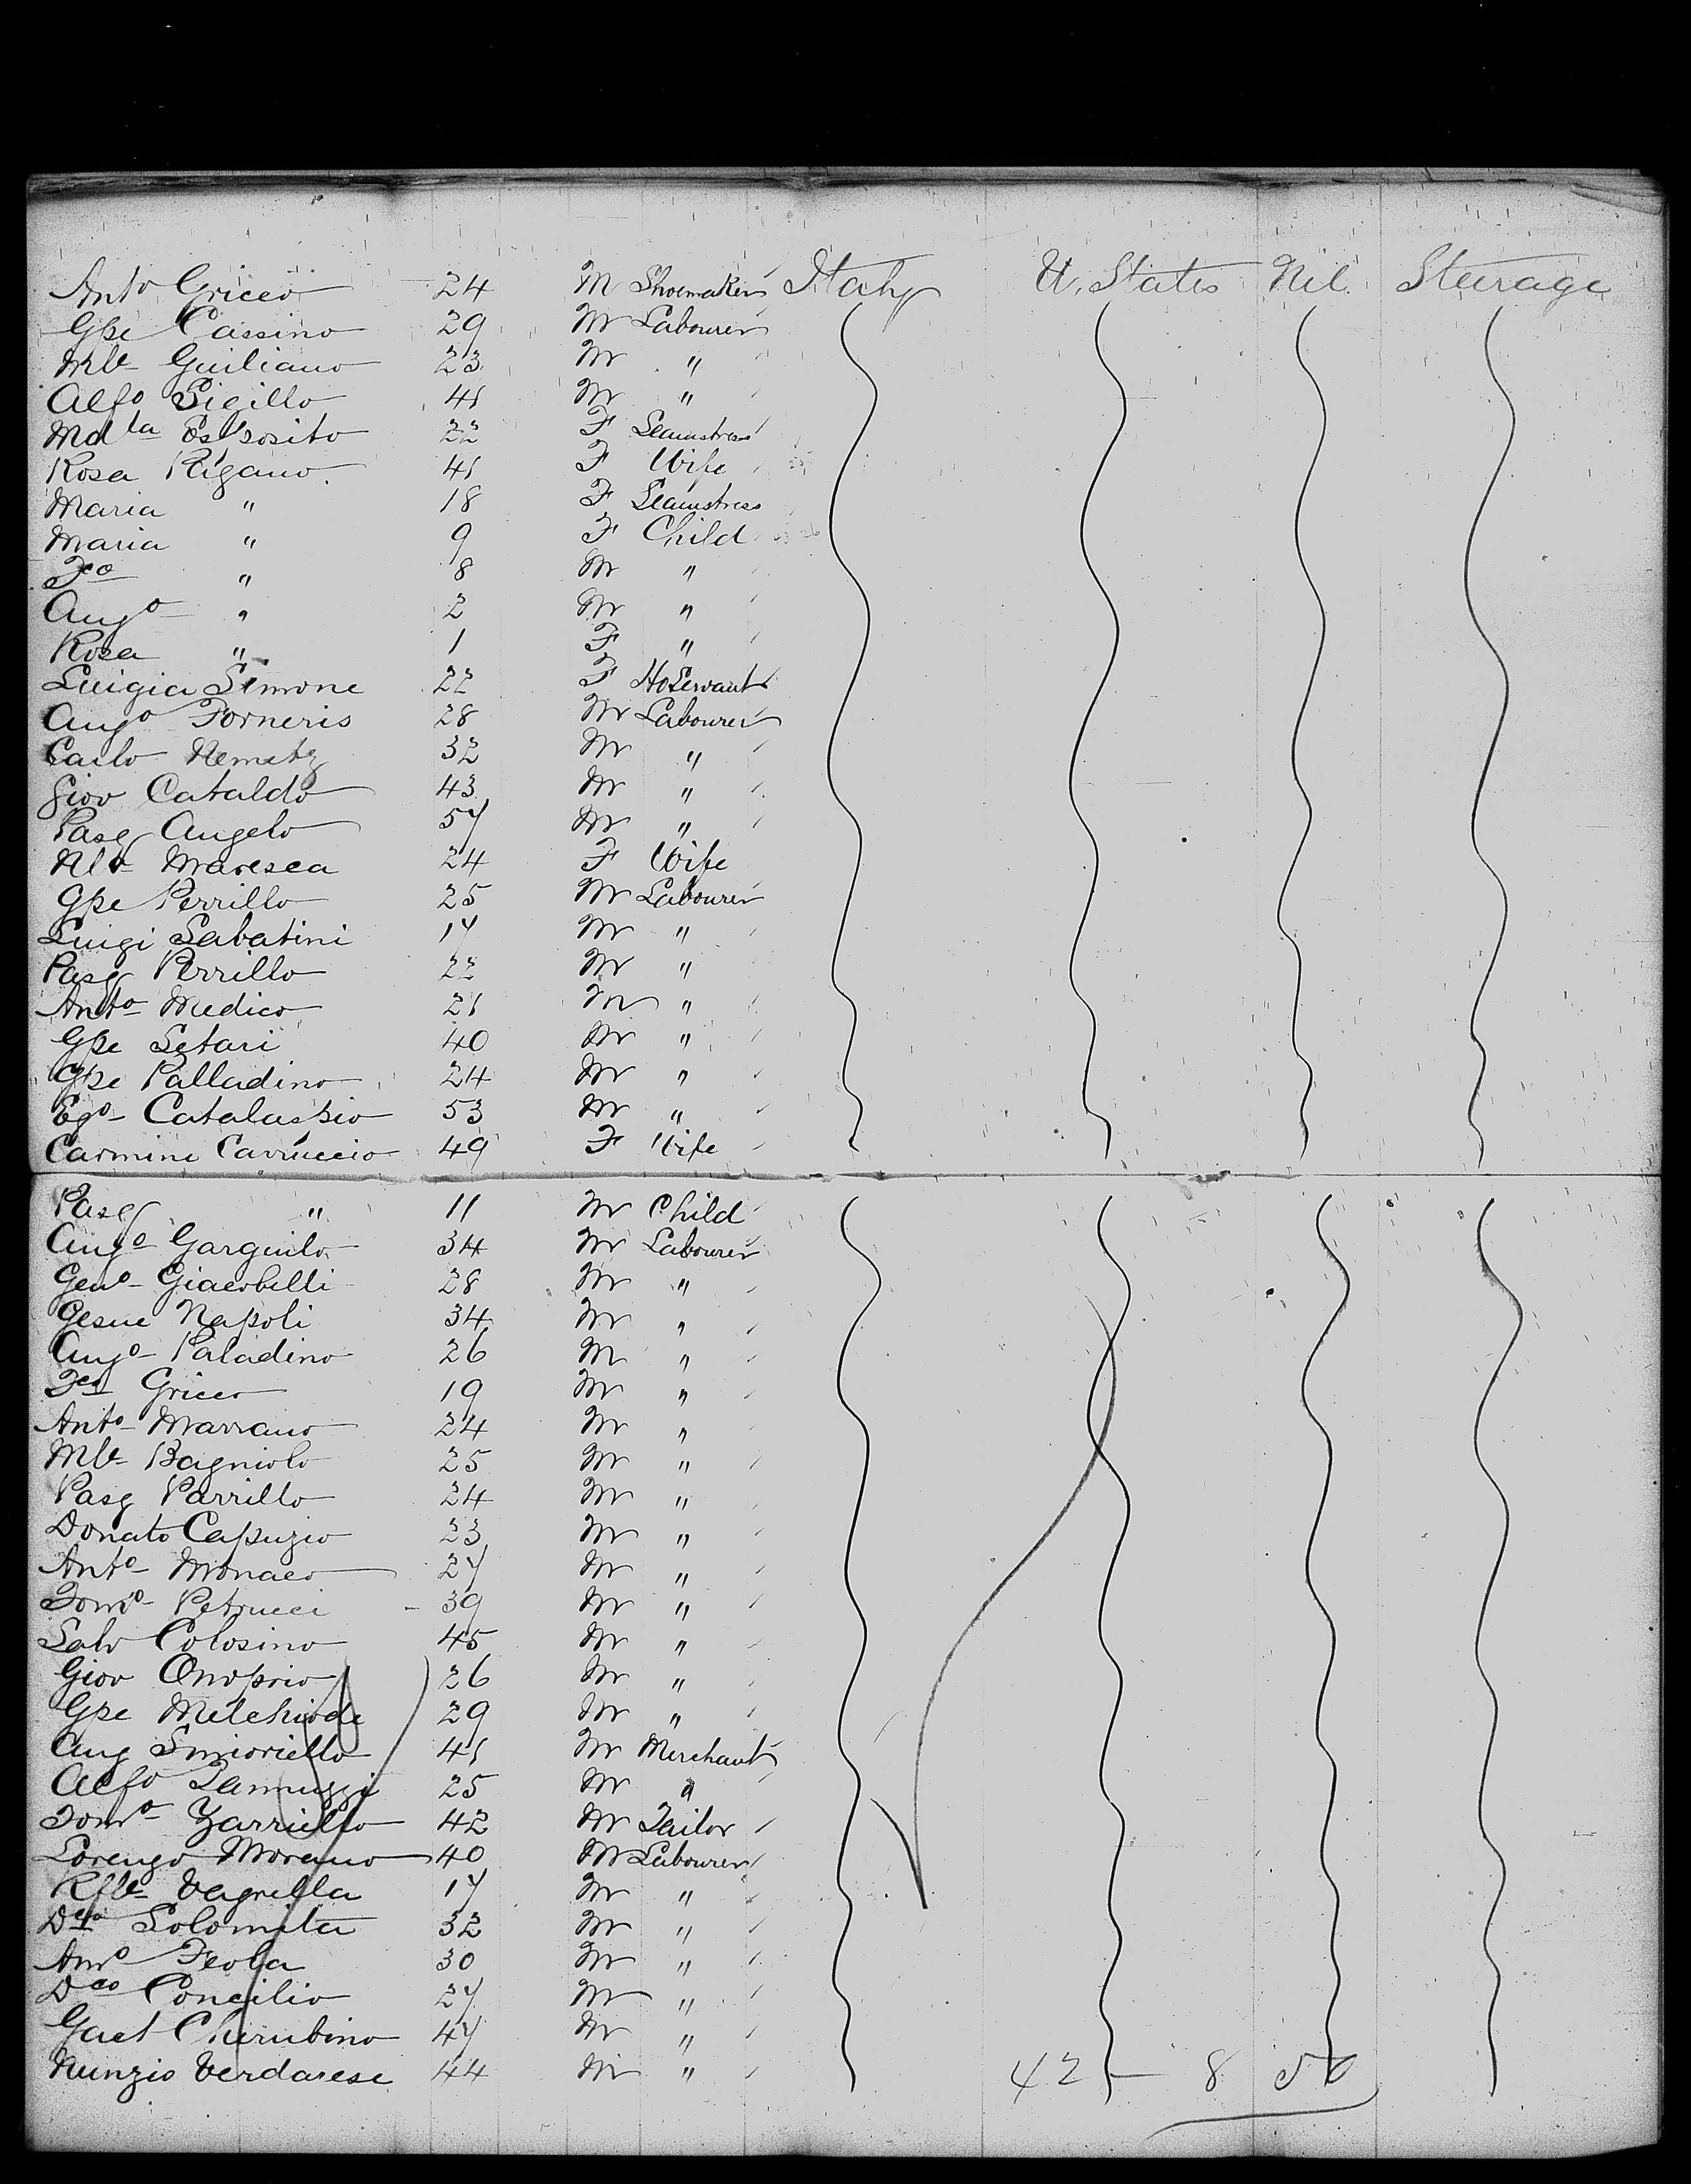 Anto Gricco 24 M Shoemaker Italy U. States Nil Steerage
Gpe Cassino 29 M Labourer
Mle Guiliano 23 M "
Alfo Sicillo 41 M "
Mdla Esposito 22 F Seamstress
Rosa Rigano 41 F Wife
Maria " 18 F Seamstress
Maria " 9 F Child
Fco " 8 M "
Ango " 2 M "
Rosa " 1 F "
Luigia Simone 22 F HoServant
Ango Forneris 28 M Labourer
Carlo Nemetz 32 M "
Giov Cataldo 43 M "
Pasq Angelo 57 M "
Maresca 24 F Wife
Gpe Perrillo 25 M Labourer
Luigi Sabatini 17 M "
Pasq Perrillo 22 M "
Anto Medico 21 M "
Gpe Setari 40 M "
Gpe Palladino 24 M "
Ego Cataluppio 53 M "
Carmine Carruccio 49 F Wife
Pasq " 11 M Child
Ango Garguilo 34 M Labourer
Geno Giacobelli 28 M "
Gesue Napoli 34 M "
Ango Paladino 26 M "
Fco Gricco 19 M "
Anto Marrano 24 M "
Mle Bagniolo 25 M "
Pasq Parrillo 24 M "
Donato Capuzio 23 M "
Anto Monaco 27 M "
Tomo Petrucci 39 M "
Salv Colosino 45 M "
Giov Onoprio 26 M "
Gpe Melchiode 29 M "
Ang Smioriello 41 M Merchant
Alfo Iannuzzi 25 M "
Tomo Zarriello 42 M Tailor
Lorenzo Morano 40 M Labourer
Rfle Vagnella 17 M "
Dco Solomita 32 M "
Anto Feola 30 M "
Dco Concilio 27 M "
Gaet Cherubino 47 M "
Nunzio Verdarese 44 M "
42 — 8 50